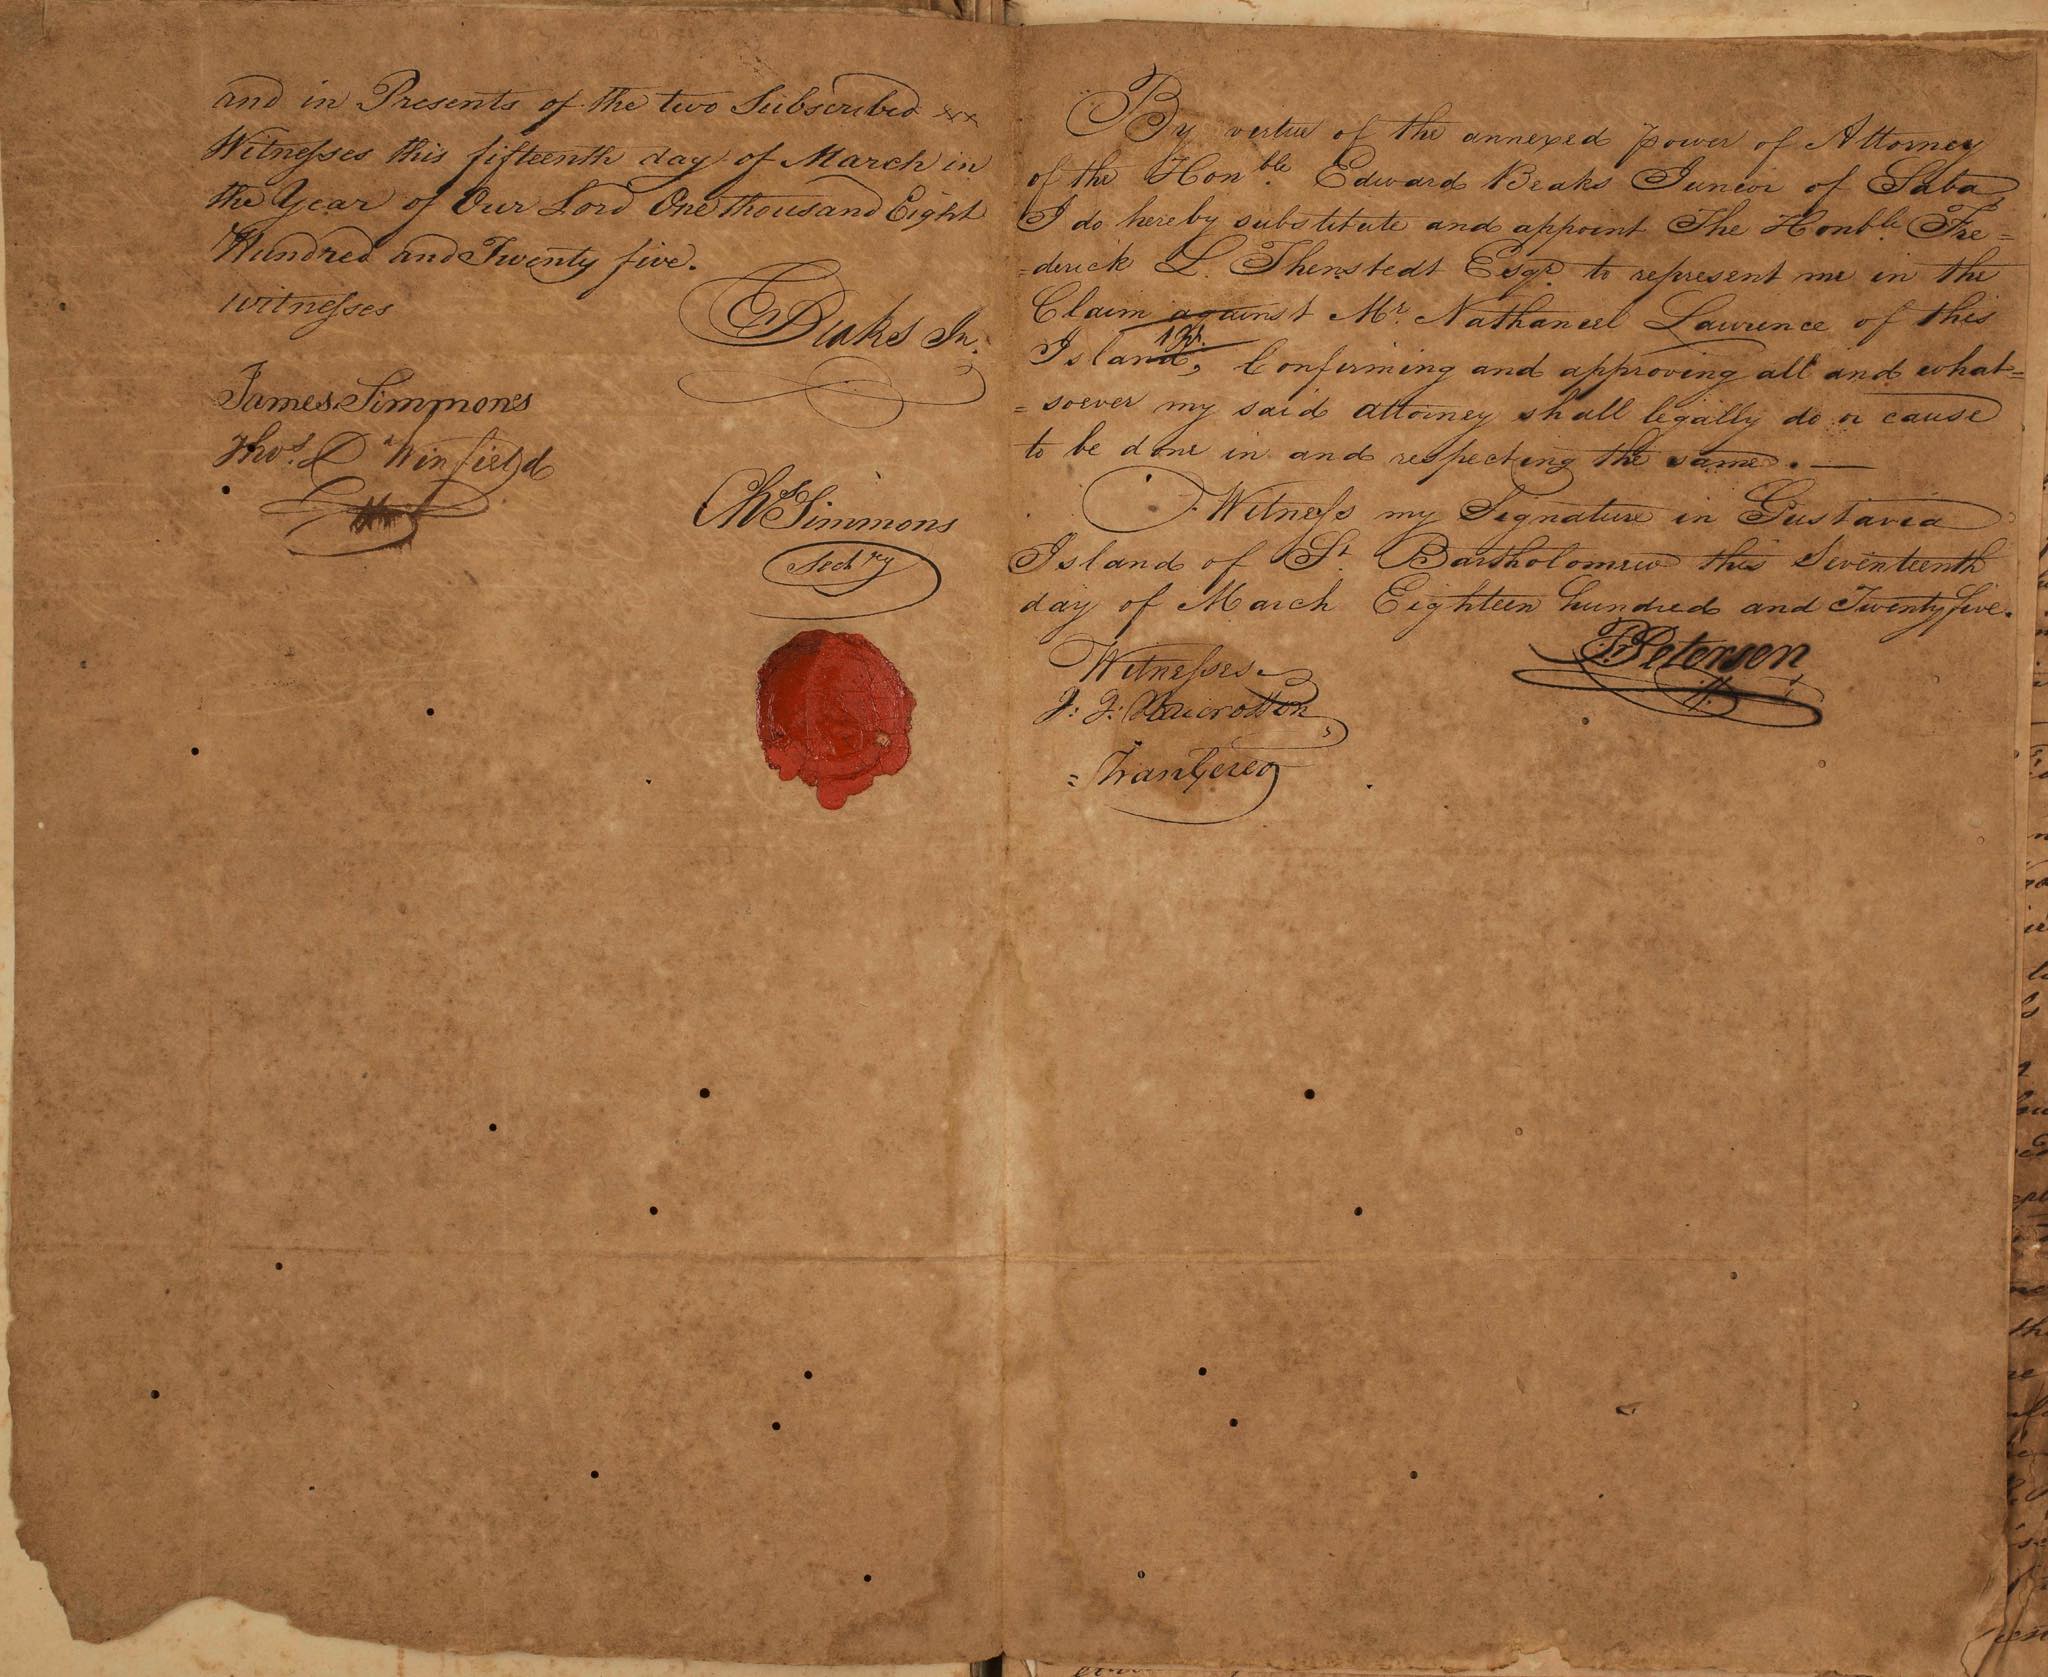 and in Presents of the two Subscribed xx
Witnesses this fifteenth day of March in
the Year of Our Lord One thousand Eight
Hundred and Twenty five.
witnesses
E Beaks Jn.
James Simmons
Thos. Winfield
Chs Simmons
Sechry
By vertue of the annexed power of Attorney
of the Honble. Edward Beaks Junior of Saba,
I do hereby substitute and appoint The Honble. Fre=
=derick L. Thenstedt Esqr. to represent me in the
Claim against Mr. Nathaneel Lawrence of this
Island, Confirming and approving all and what=
=soever my said attorney shall legally do or cause
to be done in and respecting the same. —
Witness my Signature in Gustavia
Island of St. Bartholomew this Seventeenth
day of March Eighteen hundred and Twenty five.
Petersen
Witnesses.
J: J: